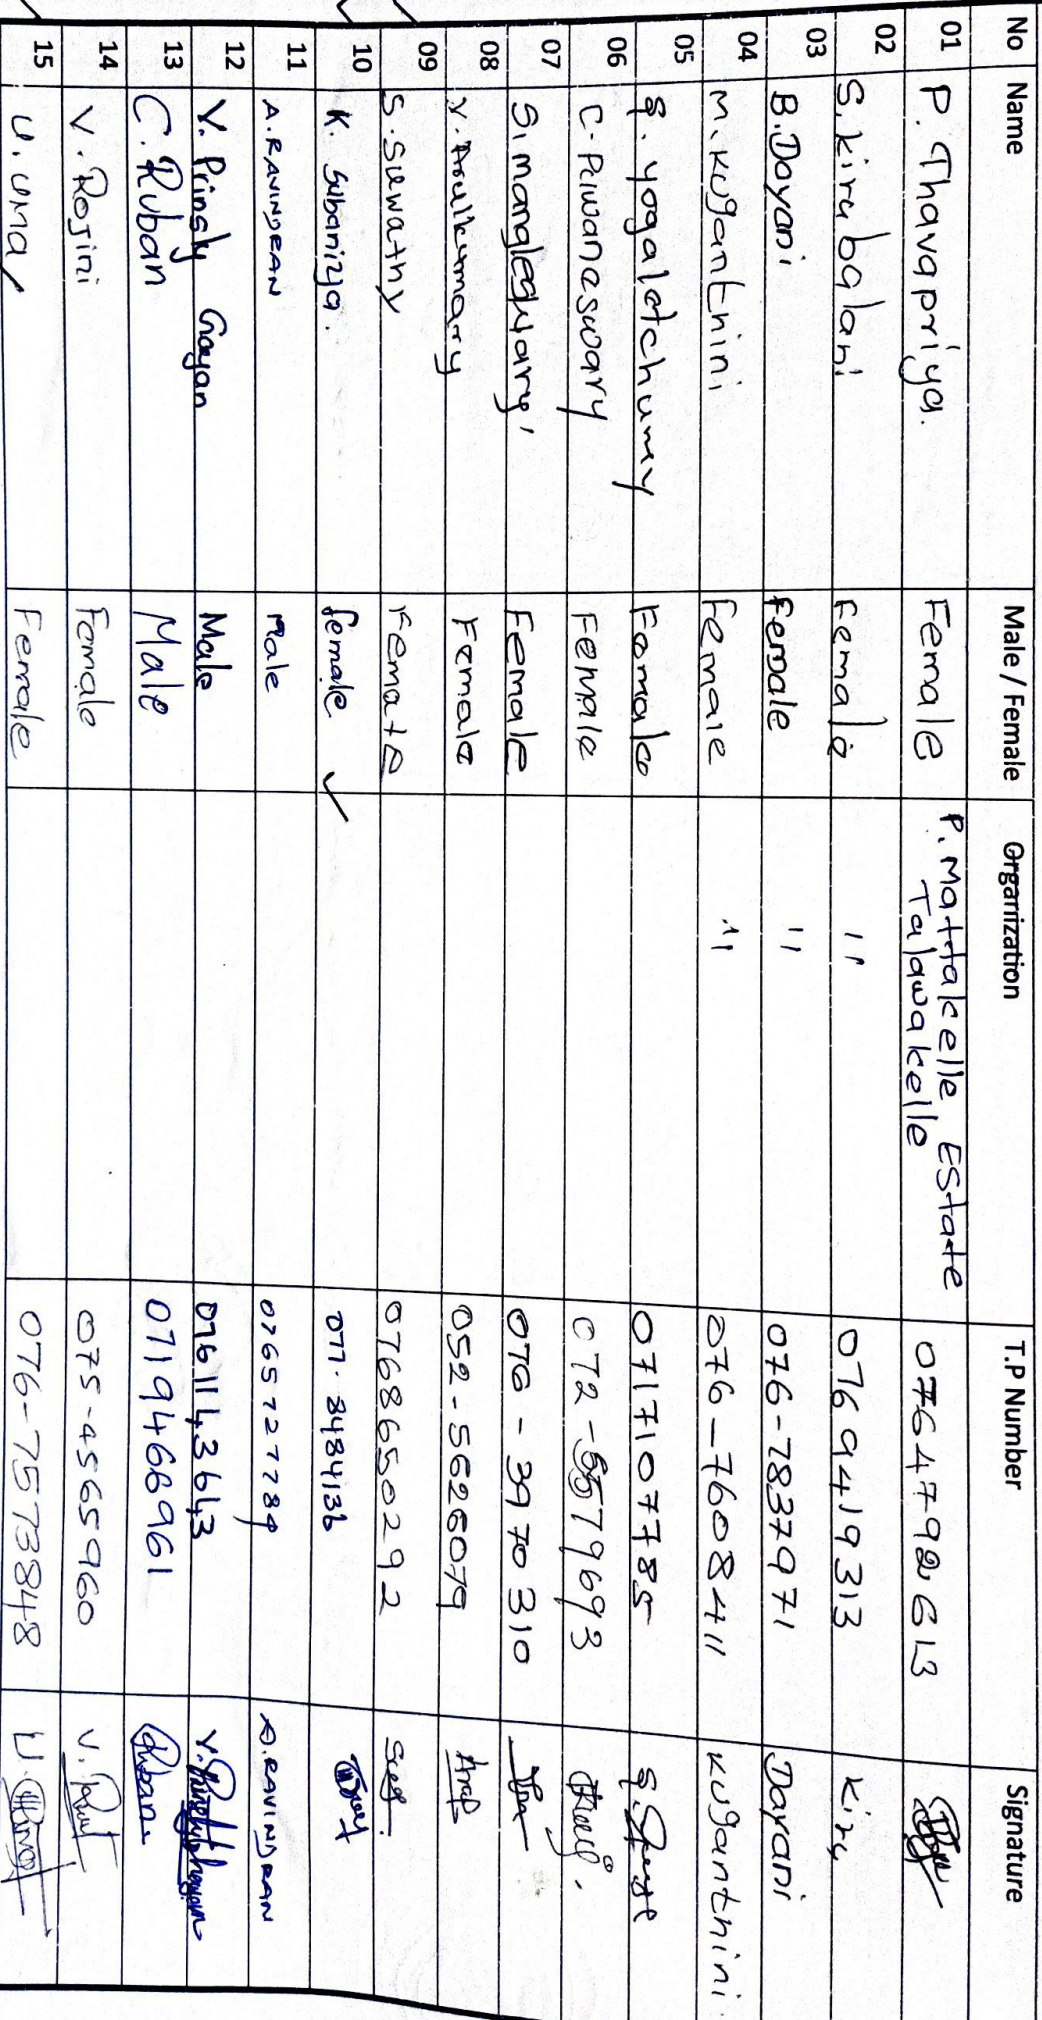 No Name Male / Female Organization T.P Number Signature
01 P. Thavapriya. Female P. Mattakelle Estate Talawakelle 0764792613
02 S. kirubalani Female 11 0769419313 Kiru
03 B. Dayani Female 11 076-7837971 Dayani
04 M. Kugantnini Female 11 076-7608411 Kugantnini.
05 S. yogaletchumy Female 0717107785
06 C. Puwaneswary Female 072-5579693
07 S. mangleswary Female 076-3970310
08 Female 052-5626079
09 S. Suwathy Female 0768650292
10 K. Subanizya. female 077-8484136
11 A. RAVINDRAN Male 0765727789 A. RAVINDRAN
12 V. Prinsly Gayan Male 0761143643
13 C. Ruban Male 0719466961 Ruban
14 V. Rojini Female 075-4565960
15 U. Uma Female 076-7573848